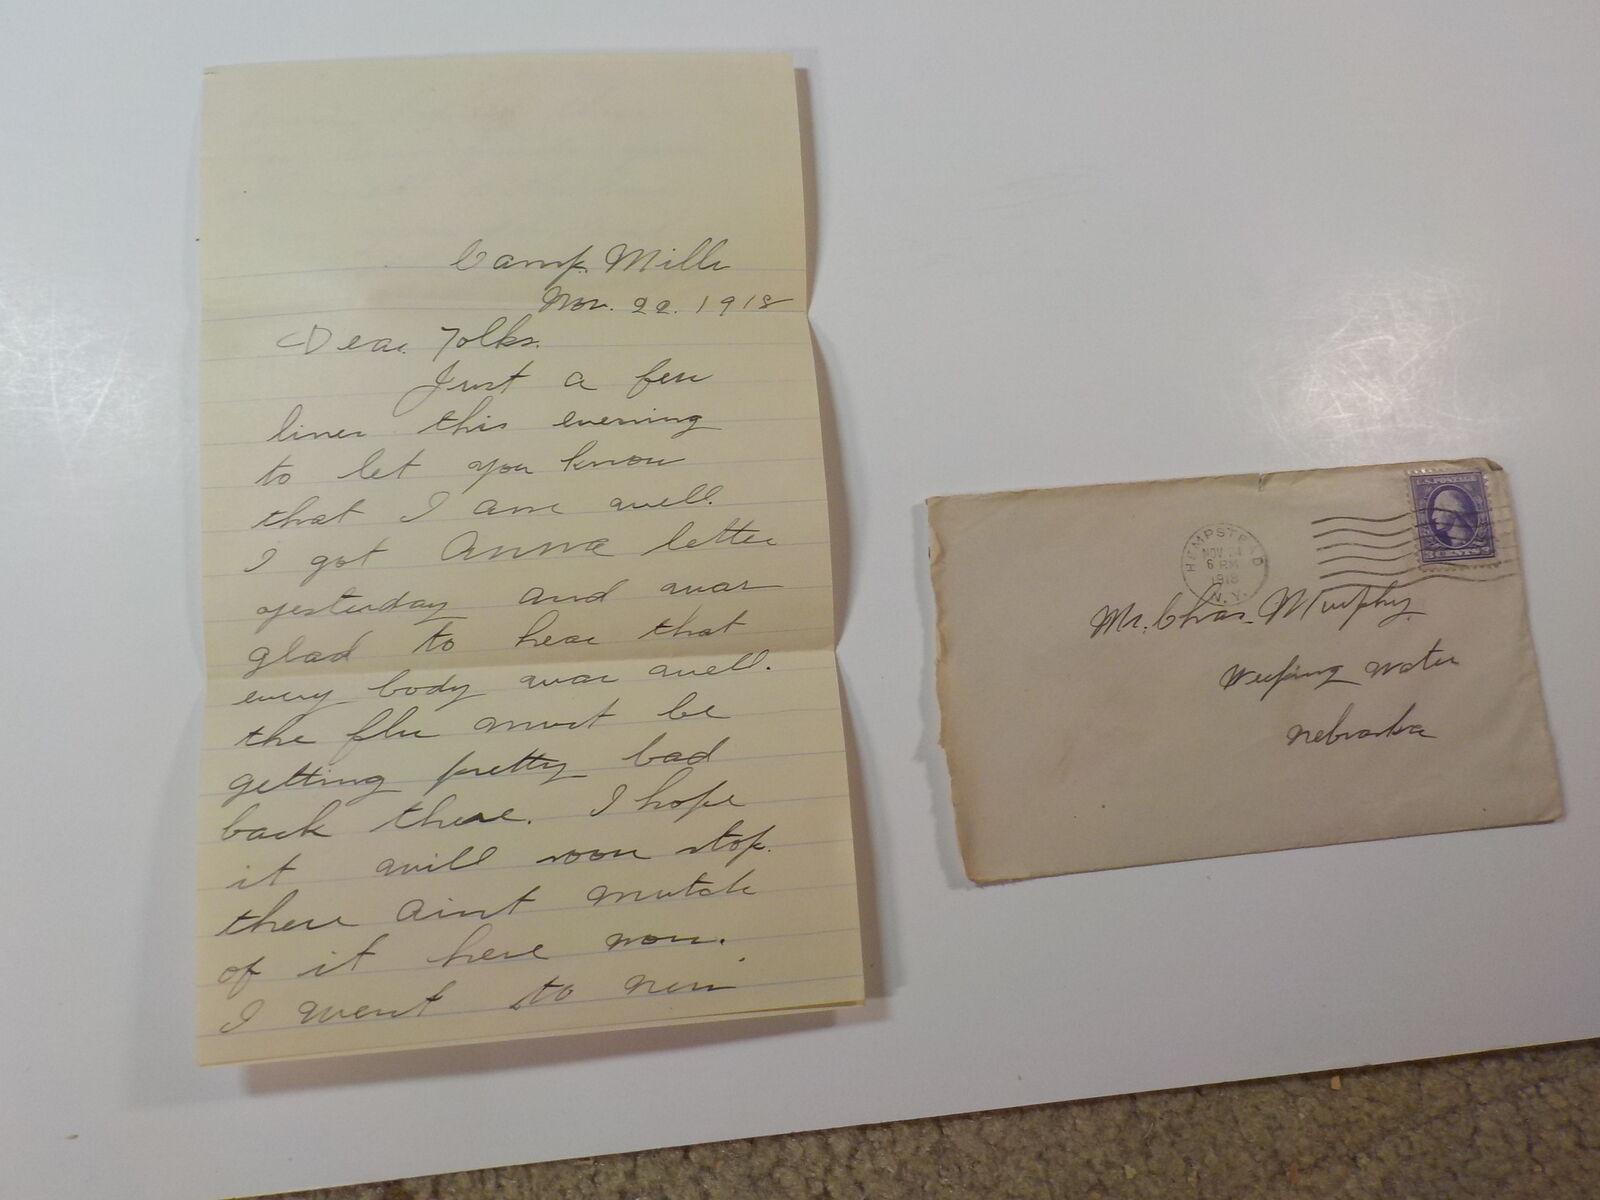 Camp. Mills
Nov. 22. 1918
Dear Folks.
Just a few
lines this evening
to let you know
that I am well.
I got Anna letter
yesterday and was
glad to hear that
every body was well.
the flu must be
getting pretty bad
back there. I hope
it will soon stop.
there aint mutch
of it here now.
I went to New
U.S. POSTAGE
3 CENTS 3
HEMPSTEAD
NOV 24
6 PM
1918
N.Y.
Mr. Chas. Murphy.
Weeping Water
Nebraska